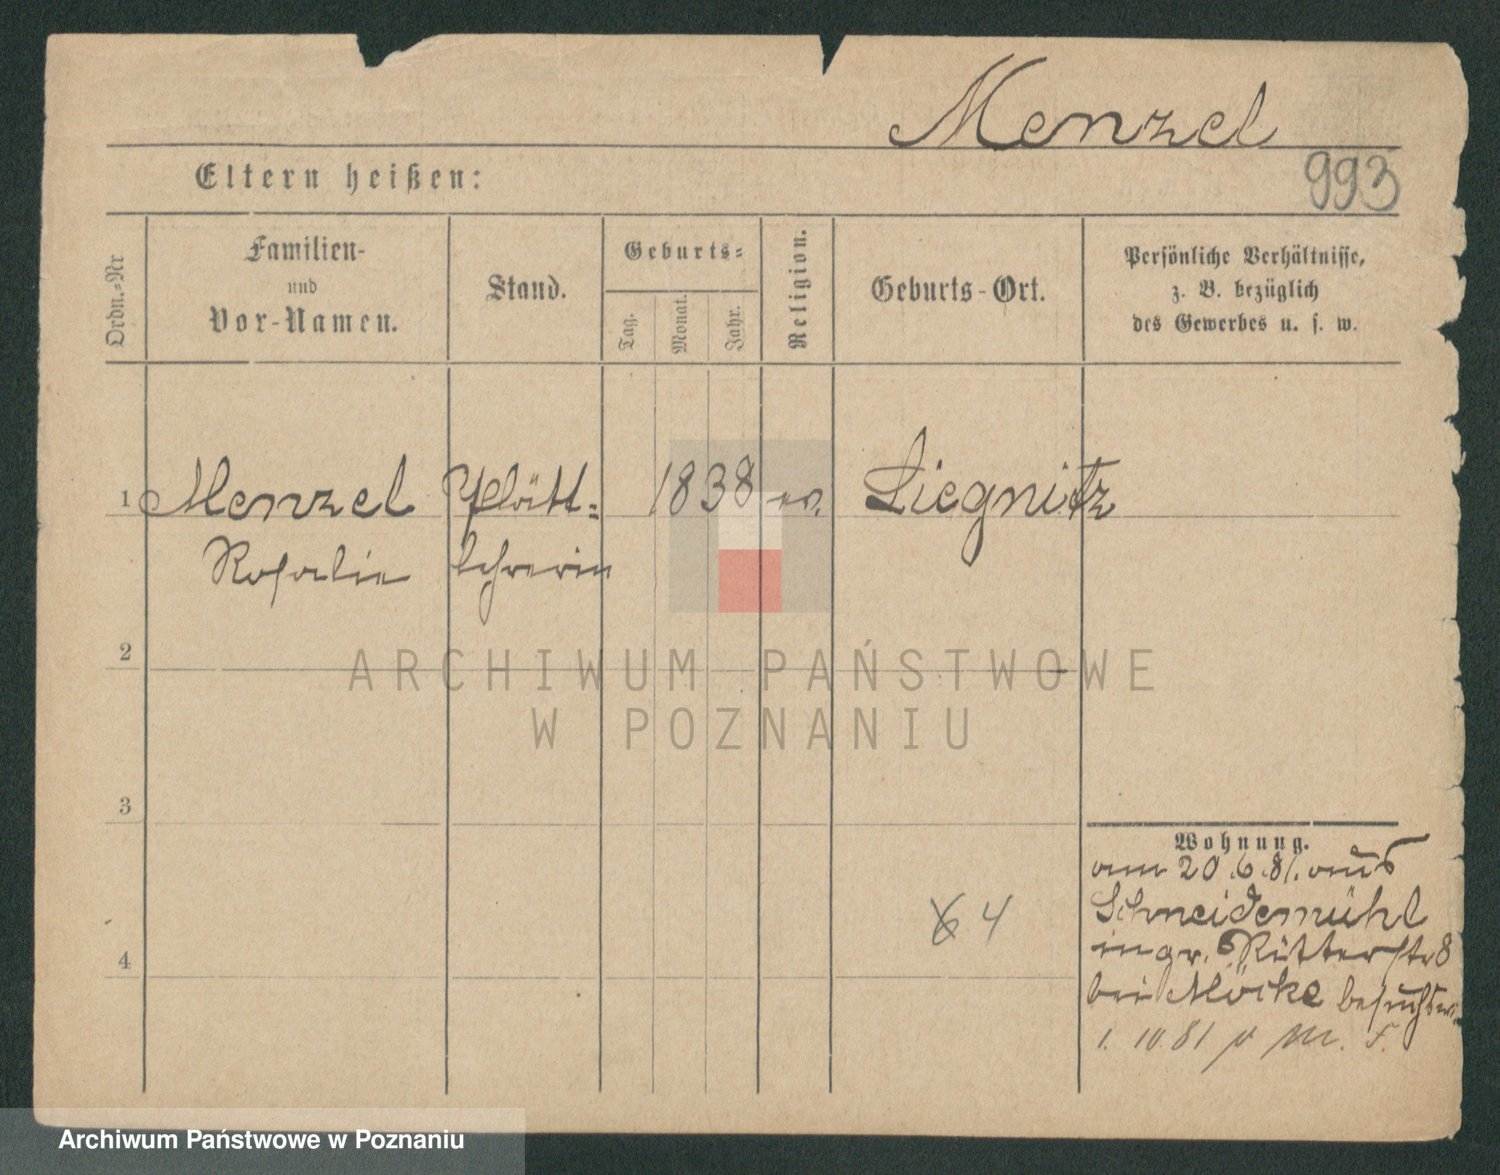 Menzel
993
Eltern heißen:
Ordn.-Nr
Familien-
und
Vor-Namen.
Stand.
Geburts-
Tag.
Monat.
Jahr.
Religion.
Geburts-Ort.
Persönliche Verhältnisse,
z. B. bezüglich
des Gewerbes u. s. w.
1 Menzel Plätt- 1838 ev. Liegnitz
Rosalie lehrerin
2
3
4
64
Wohnung.
am 20.6.81. aus
Schneidemühl
in gr. Ritterstr 8
bei Möcke besuchsw.
1. 10. 81
ARCHIWUM PAŃSTWOWE
W POZNANIU
Archiwum Państwowe w Poznaniu